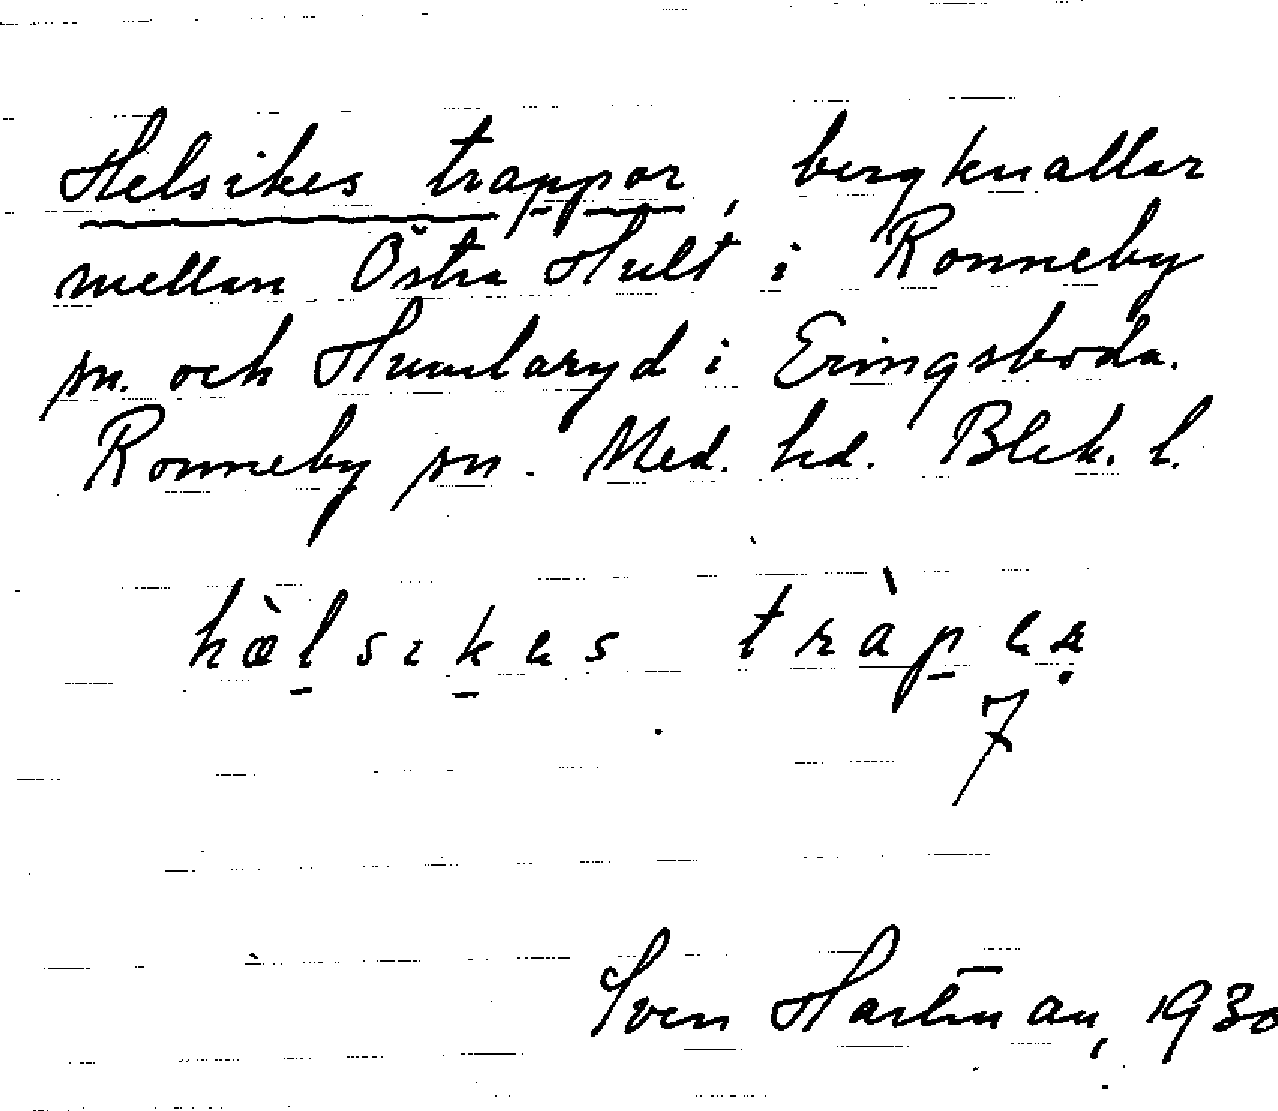 Helsikes trappor, bergknallar
mellan Östra Hult i Ronneby
sn. och Humlaryd i Eringsboda.
Ronneby sn. Med. hd. Blek. l.
hæ̀lsikəs tràpər
7
Sven Hartman, 1930